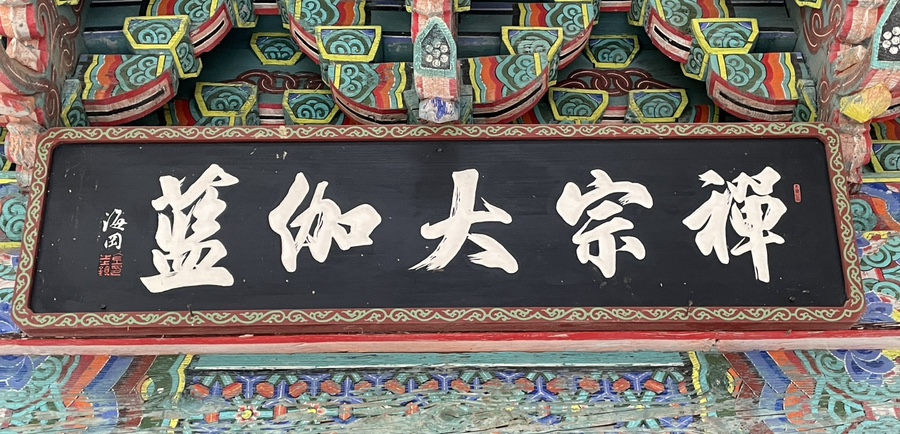 禪宗大伽藍
海岡